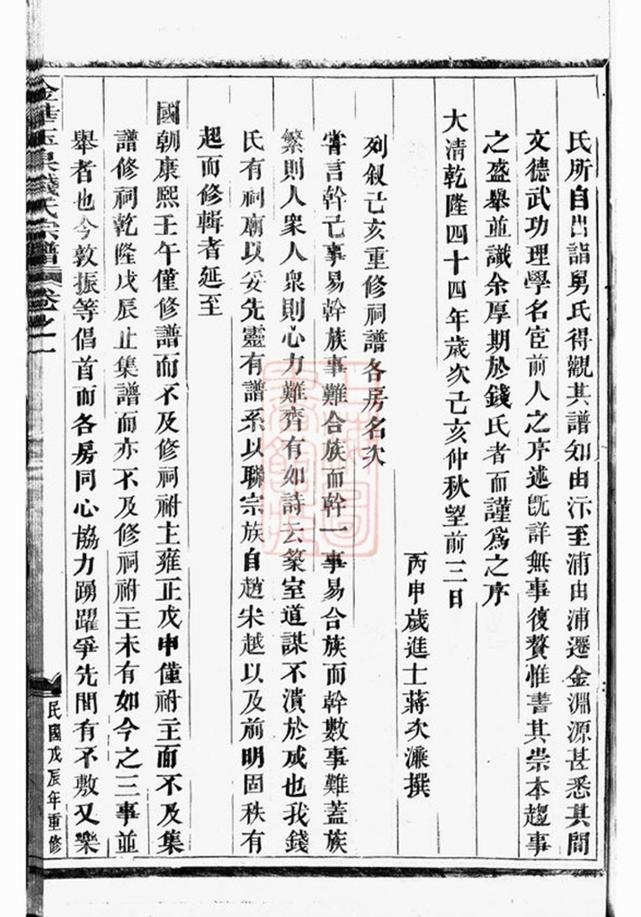 氏所自出詣舅氏得觀其譜知由汴至浦由浦遷金淵源甚悉其間
文德武功理學名宦前人之序述旣詳無事復贅惟書其崇本趨事
之盛舉並識余厚期於錢氏者而謹爲之序
大清乾隆四十四年歲次己亥仲秋望前三日
丙申歲進士蔣次濂撰
列叙己亥重修祠譜各房名次
嘗言幹己事易幹族事難合族而幹一事易合族而幹數事難蓋族
繁則人衆人衆則心力難齊有如詩云築室道謀不潰於成也我錢
氏有祠廟以妥先靈有譜系以聯宗族自趙宋越以及前明固秩有
起而修輯者延至
國朝康熙壬午僅修譜而不及修祠祔主雍正戊申僅祔主而不及集
譜修祠乾隆戊辰止集譜而亦不及修祠祔主未有如今之三事並
舉者也今敦振等倡首而各房同心協力踴躍爭先間有不敷又樂
金華玉泉錢氏宗譜
卷之一
民國戊辰年重修